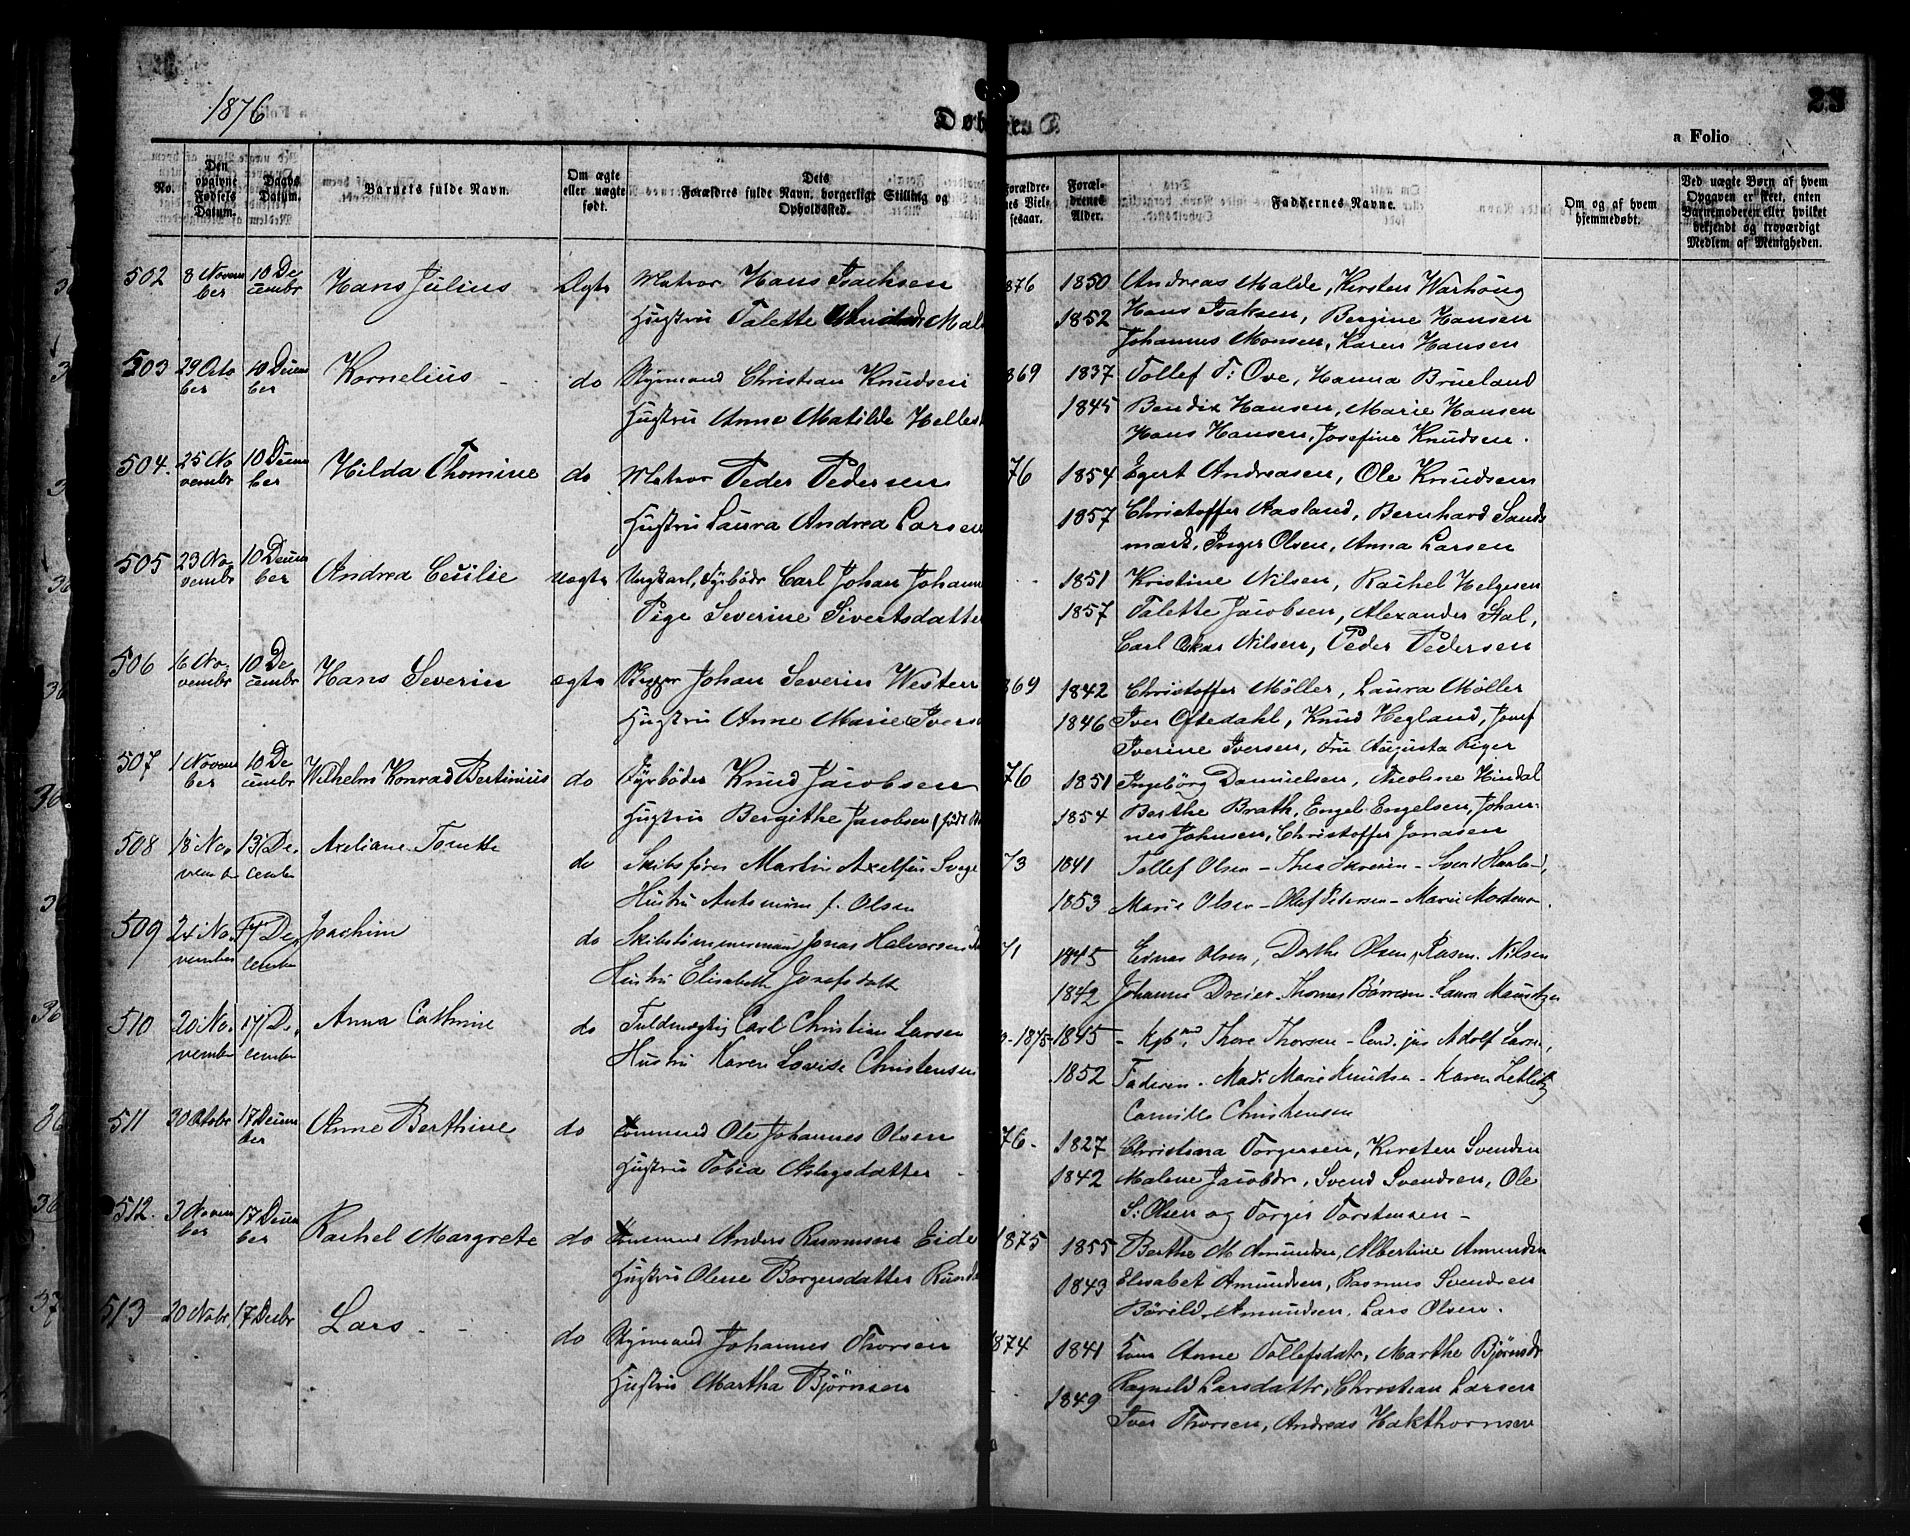 1876
23
a Folio
No.
Den opgivne Fødsels Datum.
Daabs Datum.
Barnets fulde Navn.
Om ægte eller uægte født.
Dets Forældres fulde Navn, borgerlige Stilling og Opholdssted.
Forældrenes Vielsesaar.
Forældrenes Alder.
Faddernes Navne.
Om og af hvem hjemmedøbt.
Ved uægte Børn af hvem Opgaven er skeet, enten Barnemoderen eller hvilket bekjendt og troværdigt Medlem af Menigheden.
502 8 November 10 December Hans Julius Ægte Matros Hans Isachsen 1876 1850 Andreas Malde, Kirsten Warhoug
Hustru Talette Mal 1852 Hans Isaksen, Bergine Hansen
Johannes Monsen, Karen Hansen
503 29 October 10 December Kornelius do Styrmand Christian Knudsen 869 1837 Tollef T: Ove, Hanna Brueland
Hustru Anne Matilde Hellest 1845 Bendix Hansen, Marie Hansen
Hans Hansen, Josefine Knudsen.
504. 25 November 10 December Hilda Thomine do Matros Peder Pedersen 76 1854 Egert Andreasen, Ole Knudsen
Hustru Laura Andrea Larsen 1857 Christoffer Aasland, Bernhard Sands
mark, Inger Olsen, Anna Larsen
505 23 November 10 December Andrea Cecilie Uægte Ungkarl, Fyrbøder Carl Johan Johann 1851 Kristine Nilsen, Rachel Helgesen
Pige Severine Sivertsdatter 1857 Talette Jacobsen, Alexander Stal,
Carl Oskar Nilsen, Peder Pedersen
506 16 November 10 December Hans Severin ægte Skipper Johan Severin Westen 869 1842 Christoffer Møller, Laura Møller
Hustru Anne Marie Ivers 1846 Iver Oftedahl, Knud Hegland, Josef
Iverine Iversen, Fru Augusta Riger
507 1 November 10 December Wilhelm Konrad Bertinius do Fyrbøder Knud Jacobsen 76 1851 Ingebörg Danielsen, Nicoline Hindal
Hustru Bergithe Jacobsen (født 1854 Berthe Brath, Engel Engelsen, Johan-
nes Johnsen, Christoffer Jonasen
508 18 November 13 December Axeliane Tonette do Skibsfører Martin Axelsen Svege 73 1841 Tollef Olsen - Thea - Svend
Hustru f. Olsen 1853 Marie Olsen - Olaf Pedersen - Marie Mortens.
509 24 November 17 December Joachim do Skibstimmermand Jonas Halvorsen 71 1845 Olsen, Dorthe Olsen, Rasm. Nilsen
Hustru Elisabeth Josefsdatt 1842 Johanne Dreier - Thomas - Laura
510 20 November 17 December Anna Cathrine do Fuldmægtig Carl Christian Larsen 1875 1845 Kjbmd Thore Thorsen - Cand. jur Adolf Larsen,
Hustru Karen Lovise Christensen 1852 Faderen - Mad. Marie Knudsen - Karen
Camilla Christensen
511 30 Octobr 17 December Anne Berthine do Tømmermd Ole Johannes Olsen 76. 1827 Christiana Torgersen, Kirsten Svendsen
Hustru Tobia Aslagsdatter 1842 Malene Jacobdr, Svend Svendsen, Ole
S: Olsen og Torger Torstensen -
512. 3 November 17 December Rachel Margrete do Anders Rasmussen Eide 1875 1855 Berthe M Amundsen, Albertine Amundsen
Hustru Olene Borgersdatter 1843 Elisabet Amundsen, Rasmus Svendsen
Börild Amundsen, Lars Olsen.
513 20 Nobr, 17 Decbr Lars do Styrmand Johannes Thorsen 1874 1841 Anne Tollefsdatr, Marthe Bjørnsdr
Hustru Martha Bjørnsen 1849 Ragnild Larsdattr, Christian Larsen
Iver Thorsen, Andreas Hakthornsen